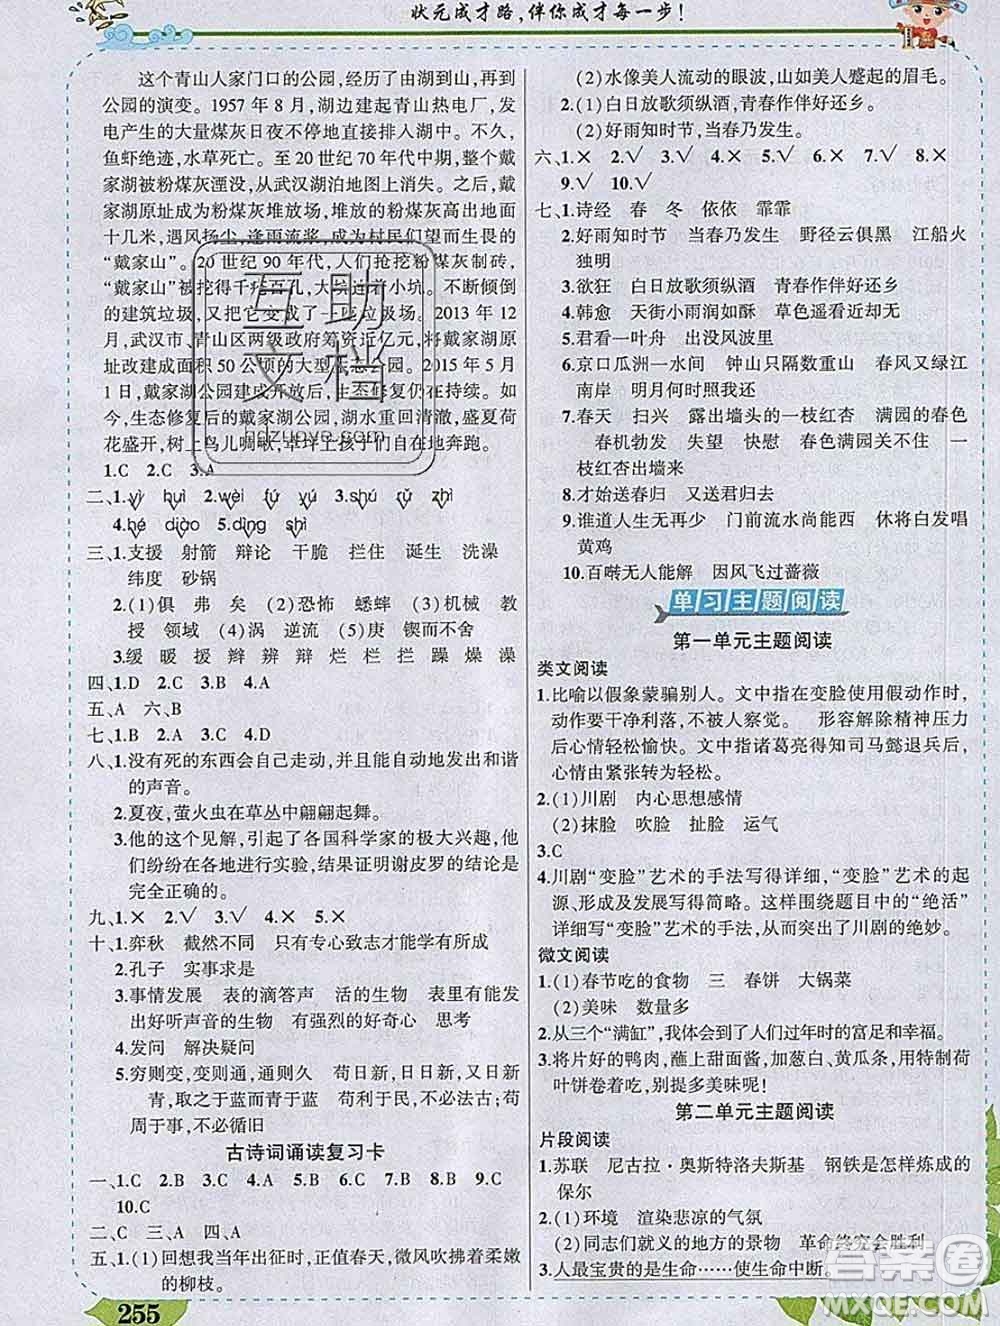 状元成才路,伴你成才每一步!
这个青山人家门口的公园,经历了由湖到山,再到
公园的演变。1957 年 8 月,湖边建起青山热电厂,发
电产生的大量煤灰日夜不停地直接排入湖中。不久,
鱼虾绝迹,水草死亡。至 20 世纪 70 年代中期,整个戴
家湖被粉煤灰湮没,从武汉湖泊地图上消失。戴
家湖原址成粉煤灰堆放场,堆放的粉煤灰高出地面
十几米,遇风扬尘,逢雨流浆,成为村民们望而生畏的
“戴家山”。20 世纪 90 年代,人们抢挖粉煤灰制砖,
“戴家山”被挖得千疮百孔,大坑连着小坑。不断倾倒
的建筑垃圾,又把它变成了一座垃圾场。2013 年 12
月,武汉市、青山区两级政府筹资近亿元,将戴家湖原
址改建成面积 50 公顷的大型生态公园。2015 年 5 月
1 日,戴家湖公园建成开放后,生态修复仍在持续。如
今,生态修复后的戴家湖公园,湖水重回清澈,盛夏荷
花盛开,树上鸟儿啁啾,草坪上孩子们自在地奔跑。
1.C 2.C 3.A
二、1.yì huì 2.wèi fú yú 3.shú rǔ zhǐ
4.hé diào 5.dīng shì
三、1.支援 射箭 辩论 干脆 拦住 诞生 洗澡
纬度 砂锅
2.(1)俱 弗 矣 (2)恐怖 蟋蟀 (3)机械 教
授 领域 (4)涡 逆流 (5)庚 锲而不舍
3.缓 暖 援 辫 辨 辩 烂 栏 拦 躁 燥 澡
四、1.D 2.C 3.B 4.A
五、A 六、B
七、1.B 2.A 3.C 4.D
八、1.没有死的东西会自己走动,并且能自动地发出和谐
的声音。
2.夏夜,萤火虫在草丛中翩翩起舞。
3.他的这个见解,引起了各国科学家的极大兴趣,他
们纷纷在各地进行实验,结果证明谢皮罗的结论是
完全正确的。
九、1.× 2.√ 3.√ 4.× 5.×
十、1.弈秋 截然不同 只有专心致志才能学有所成
2.孔子 实事求是
3.事情发展 表的滴答声 活的生物 表里有能发
出好听声音的生物 有强烈的好奇心 思考
4.发问 解决疑问
5.穷则变,变则通,通则久 苟日新,日日新,又日新
青,取之于蓝而青于蓝 苟利于民,不必法古;苟
周于事,不必循旧
古诗词诵读复习卡
一、1.C 2.A 3.C 4.A 5.C 6.A 7.B 8.B 9.C
10.C
二、C 三、A 四、A
五、1.(1)回想我当年出征时,正值春天,微风吹拂着柔嫩
的柳枝。
255
(2)水像美人流动的眼波,山如美人蹙起的眉毛。
2.(1)白日放歌须纵酒,青春作伴好还乡。
(2)好雨知时节,当春乃发生。
六、1.× 2.√ 3.√ 4.× 5.√ 6.× 7.√ 8.×
9.√ 10.√
七、1.诗经 春 冬 依依 霏霏
2.好雨知时节 当春乃发生 野径云俱黑 江船火
独明
3.欲狂 白日放歌须纵酒 青春作伴好还乡
4.韩愈 天街小雨润如酥 草色遥看近却无
5.君看一叶舟 出没风波里
6.京口瓜洲一水间 钟山只隔数重山 春风又绿江
南岸 明月何时照我还
7.春天 扫兴 露出墙头的一枝红杏 满园的春色
春机勃发 失望 快慰 春色满园关不住 一
枝红杏出墙来
8.才始送春归 又送君归去
9.谁道人生无再少 门前流水尚能西 休将白发唱
黄鸡
10.百啭无人能解 因风飞过蔷薇
单习主题阅读
第一单元主题阅读
类文阅读
1.比喻以假象蒙骗别人。文中指在变脸使用假动作时,
动作要干净利落,不被人察觉。 形容解除精神压力
后心情轻松愉快。文中指诸葛亮得知司马懿退兵后,
心情由紧张转为轻松。
2.(1)川剧 内心思想感情
(2)抹脸 吹脸 扯脸 运气
3.C
4.川剧“变脸”艺术的手法写得详细,“变脸”艺术的起
源、发展写得简略。这样围绕题目中的“绝活”
详细写“变脸”艺术的手法,从而突出了川剧的绝妙。
微文阅读
1.(1)春节吃的食物 三 春饼 大锅菜
(2)美味 数量多
2.从三个“满缸”,我体会到了人们过年时的富足和幸福。
3.将片好的鸭肉,蘸上甜面酱,加葱白、黄瓜条,用特制荷
叶饼卷着吃,别提多美味呢!
第二单元主题阅读
片段阅读
1.苏联 尼古拉·奥斯特洛夫斯基 钢铁是怎样炼成的
保尔
2.(1)环境 渲染悲凉的气氛
(2)同志们就义的地方的景物 革命终究会胜利
3.人最宝贵的是生命……使生命中断。
互助
文档
hdzuoye.com
答案圈
MXQE.COM